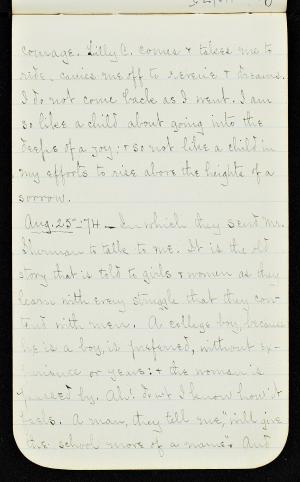 courage. Lilly C. comes & takes me to
ride, carries me off to reverie & dreams.
I do not come back as I went. I am
so like a child about going into the
deeps of a joy; & so not like a child in
my efforts to rise above the heights of a
sorrow.
Aug. 25-74 - In which they send Mr.
Sherman to talk to me. It is the old
story that is told to girls & women as they
learn with every struggle that they con-
tend with men. A college boy, because
he is a boy, is preferred, without ex-
perience or years: & the woman is
passed by. Ah! don't I know how it
feels. A man, they tell me, "will give
the school more of a name". And